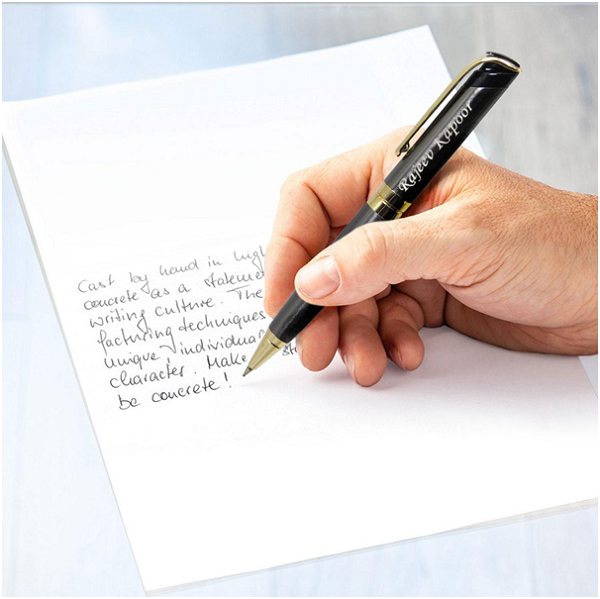 Rajeev Kapoor
Cast by hand in hig
concrete as a stateme
writing culture. The
facturing techniques
unique, individua
character. Make st
be concrete!